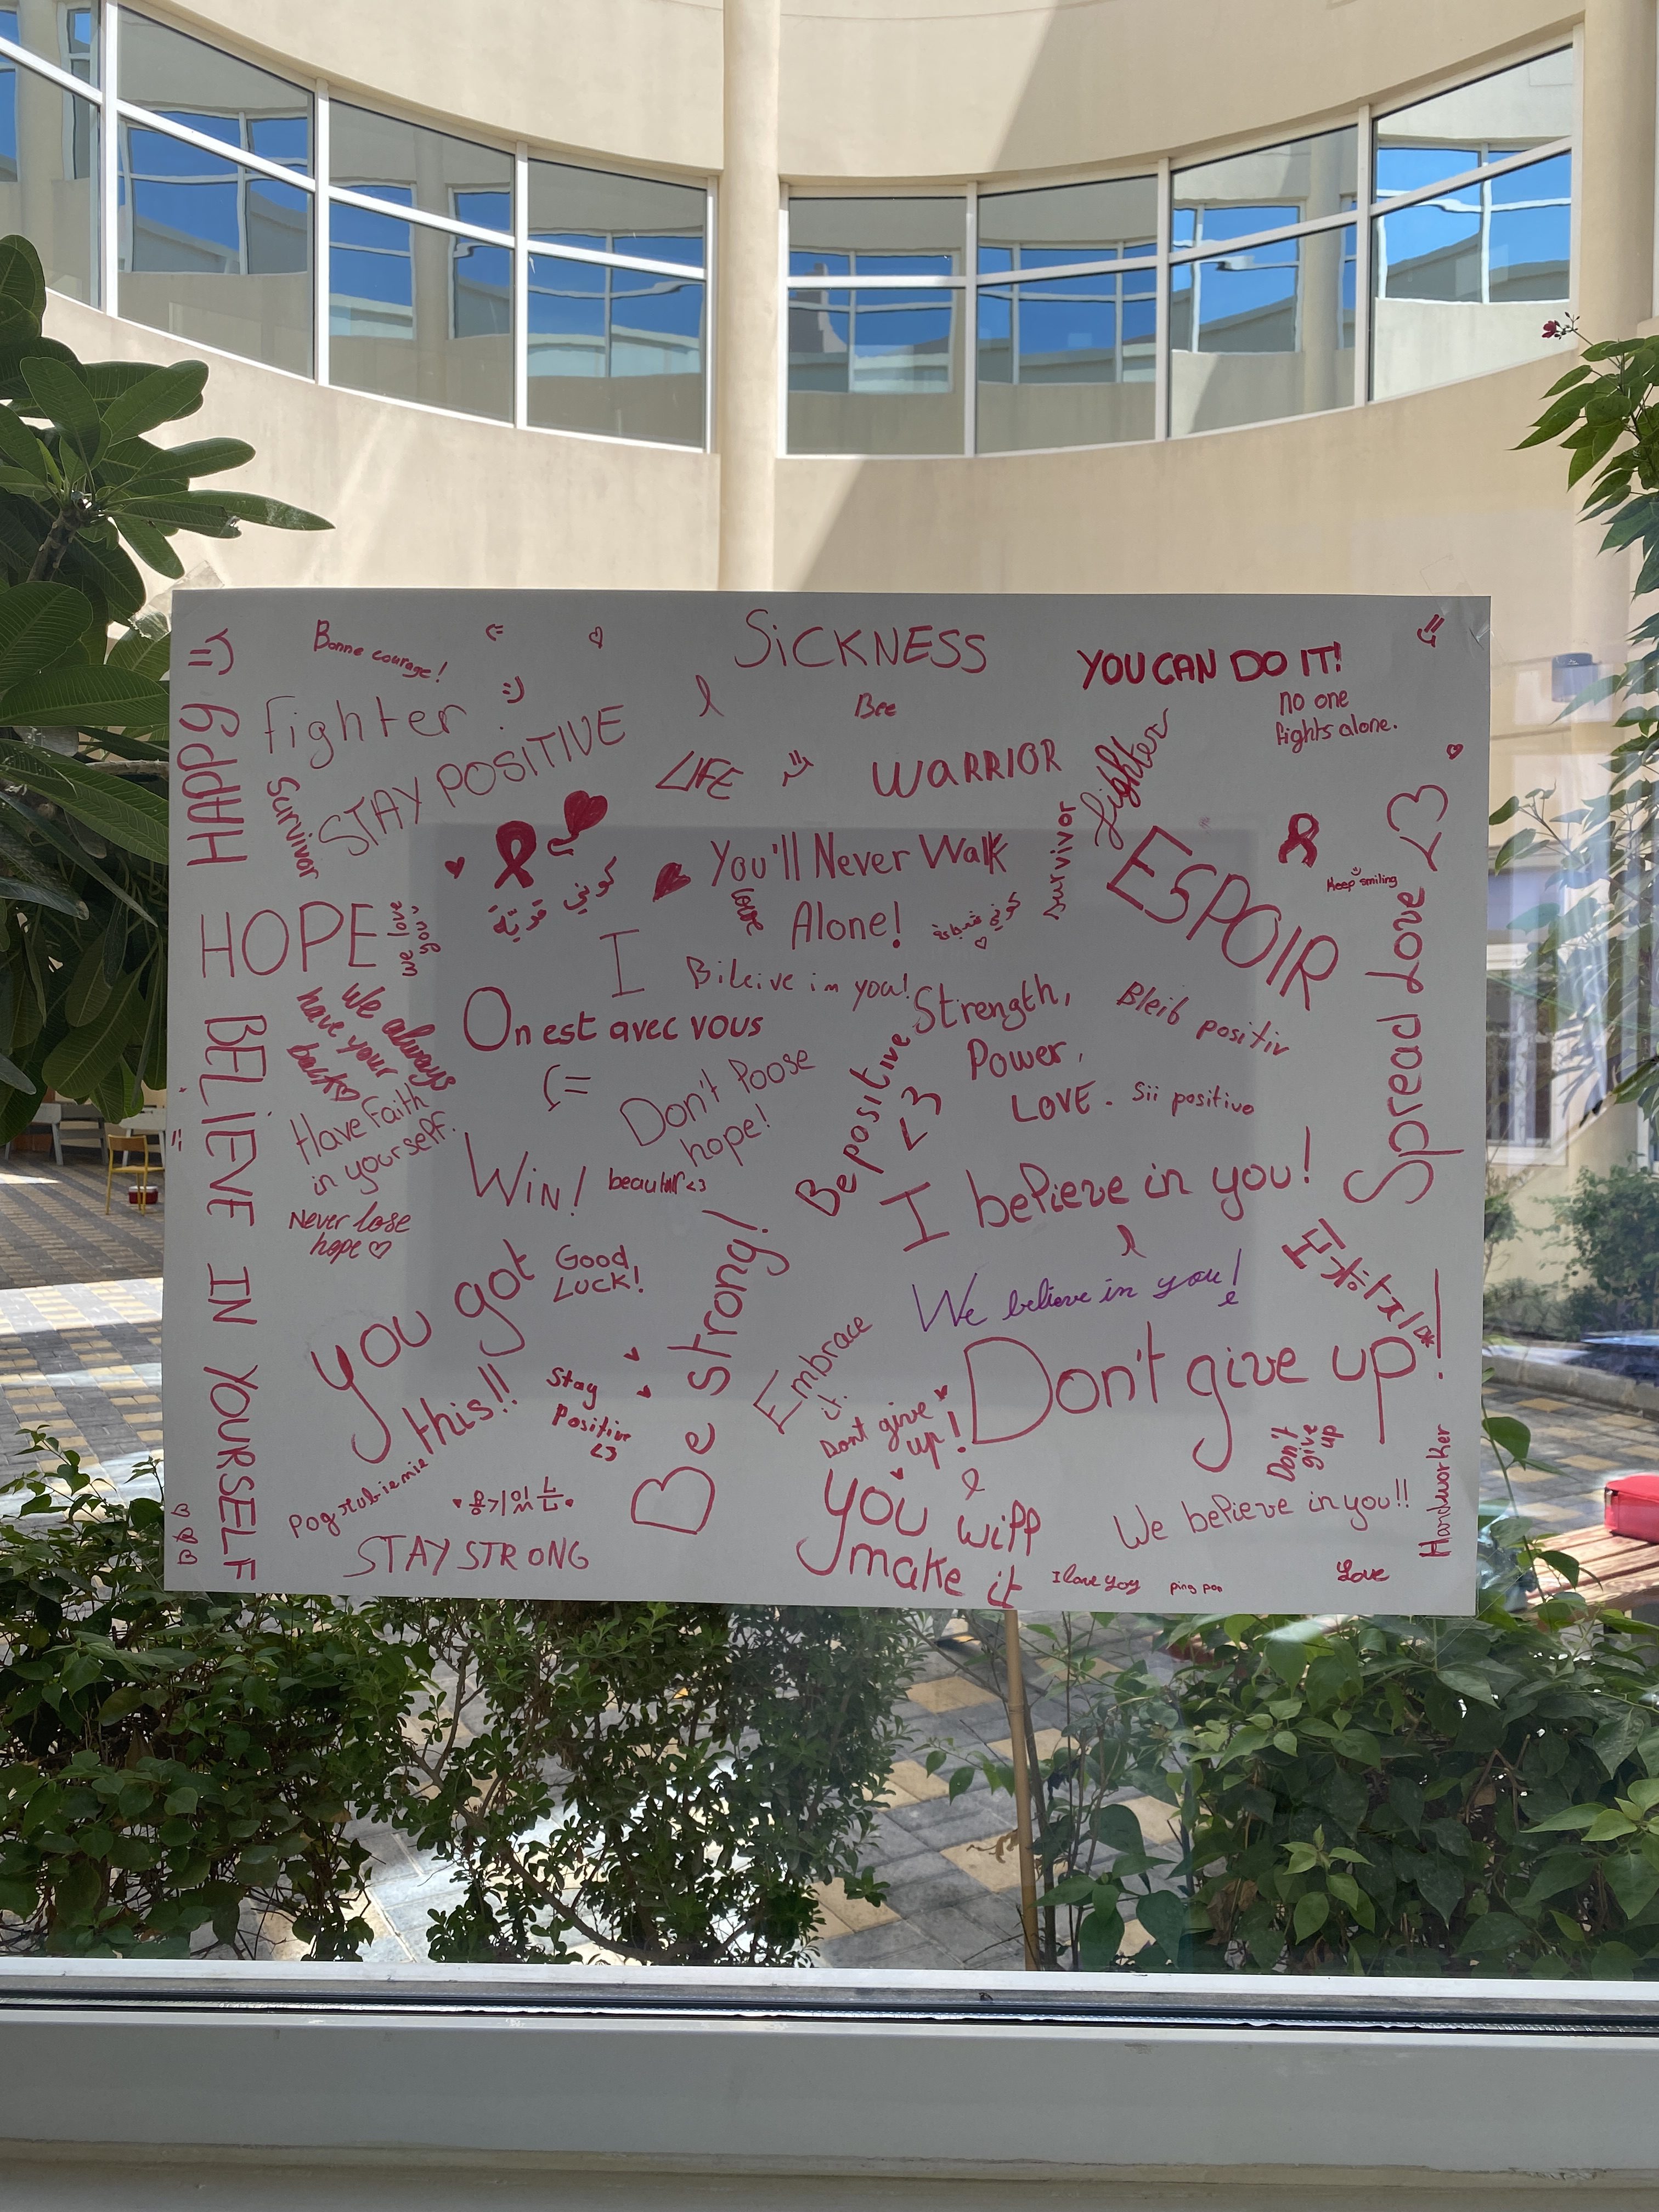 HAPPY =)
Bonne courage!
(=
♡
SiCKNESS
YOU CAN DO IT!
=)
fighter
:)
Bee
no one
fights alone.
STAY POSITIVE
LIFE
=)
WARRIOR
fighter
Survivor
You'll Never Walk
Alone!
love
survivor
ESPOIR
Keep smiling
<3
Spread Love
كوني قوية
كوني شجاعة
HOPE
we love
you
I
Bileive in you!
Strength,
Power,
LOVE.
Bleib positiv
On est avec vous
We always
have your
back♡
(=
Don't loose
hope!
Be positive
<3
Sii positivo
Have Faith
in yourself.
BELIEVE IN YOURSELF
WiN!
<3
I believe in you!
Never lose
hope ♡
you got
this!!
Good
LUCK!
Be strong!
We believe in you!
Embrace
it.
Don't give up!
Stay
Positive
<3
Dont give
up!
Don't
give
up
Hardworker
용기있는
STAY STRONG
you will
make it
We believe in you!!
I love yoy
Love